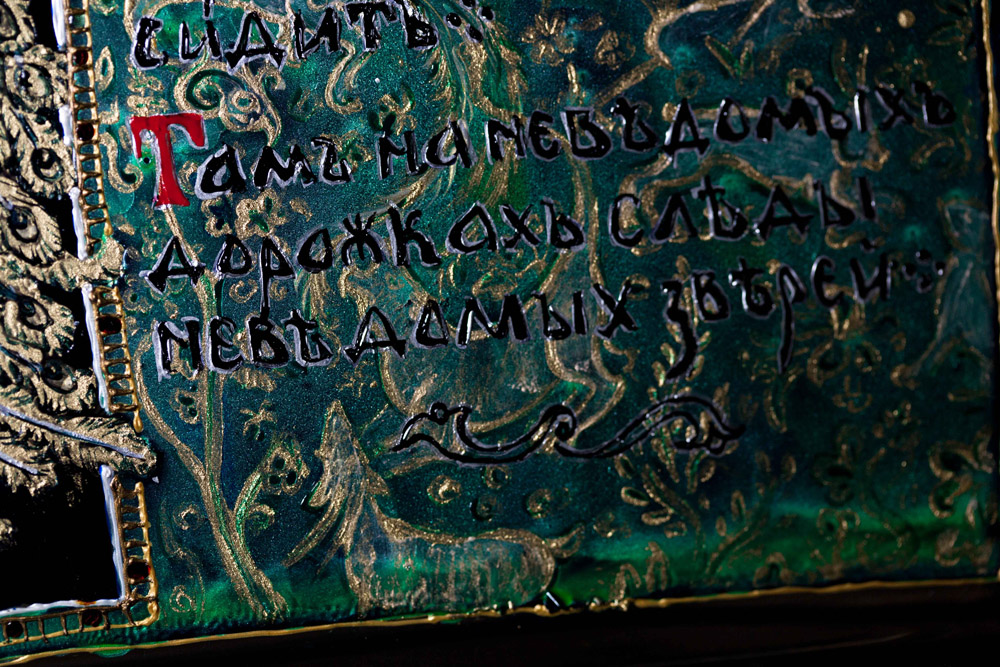 сидитъ
Тамъ на невѣдомыхъ
дорожкахъ слѣды
невѣдомых звѣрей